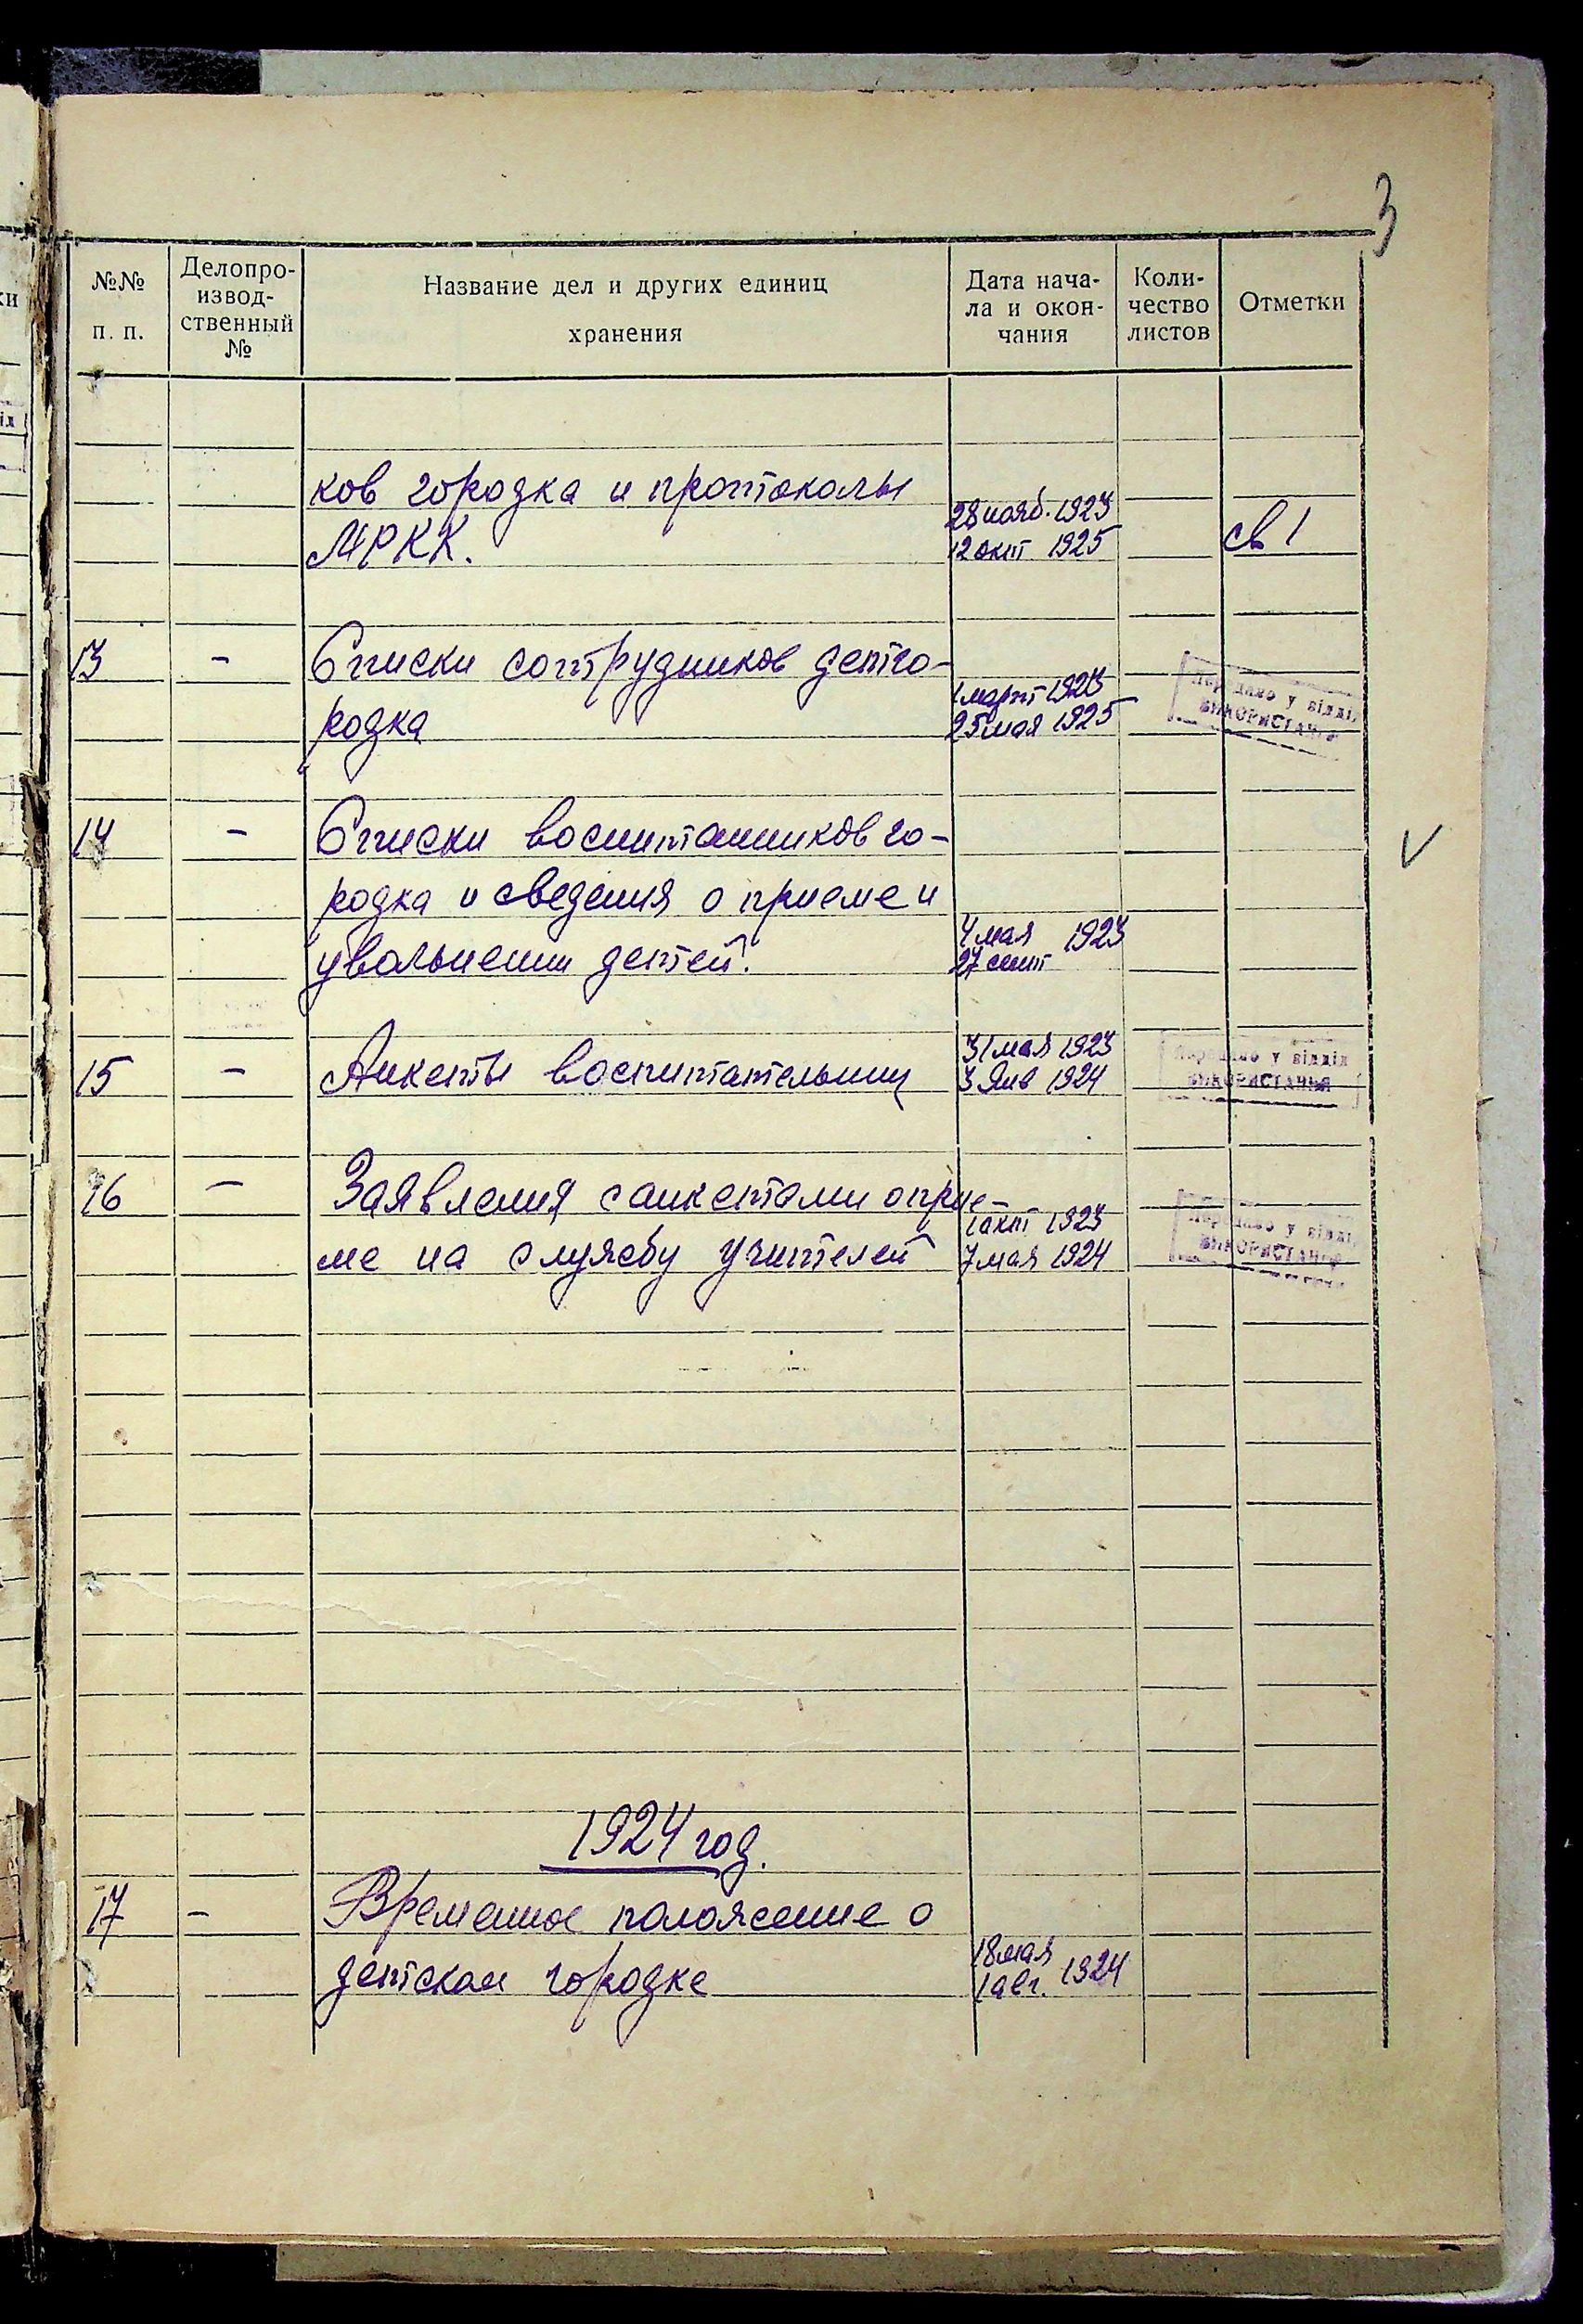 3
№№ п. п.
Делопро-
извод-
ственный
№
Название дел и других единиц
хранения
Дата нача-
ла и окон-
чания
Коли-
чество
листов
Отметки
ков городка и протоколы
МРКК.
28 нояб. 1923
12 окт 1925
св 1
13 - Списки сотрудников детго-
родка
1 март 1923
25 мая 1925
Передано у відділ
використання
14 - Списки воспитанников го-
родка и сведения о приеме и
увольнении детей.
4 мая 1923
27 сент
15 - Анкеты воспитательниц
31 мая 1923
3 янв 1924
Передано у відділ
використання
16 - Заявления с анкетами о прие-
ме на службу учителей
1 окт 1923
7 мая 1924
Передано у відділ
використання
1924 год.
17 - Временное положение о
детском городке
18 мая
1 авг. 1924